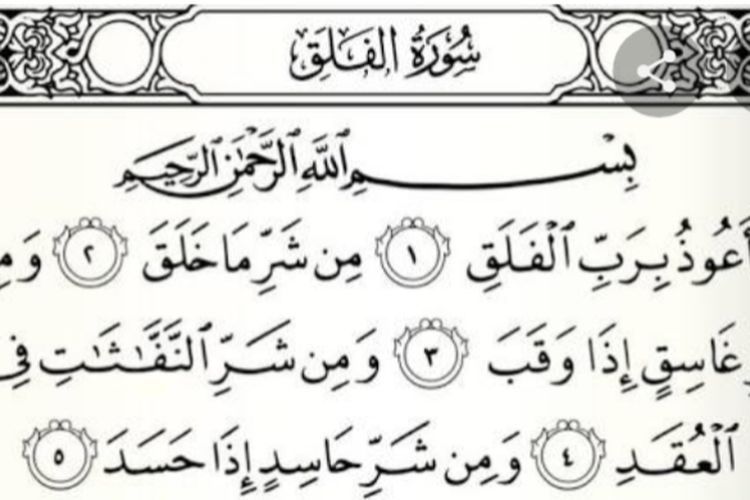 سُورَةُ الفَلَقِ
بِسْمِ ٱللَّهِ ٱلرَّحْمَٰنِ ٱلرَّحِيمِ
أَعُوذُ بِرَبِّ ٱلْفَلَقِ ١ مِن شَرِّ مَا خَلَقَ ٢ وَمِ
غَاسِقٍ إِذَا وَقَبَ ٣ وَمِن شَرِّ ٱلنَّفَّٰثَٰتِ فِي
ٱلْعُقَدِ ٤ وَمِن شَرِّ حَاسِدٍ إِذَا حَسَدَ ٥